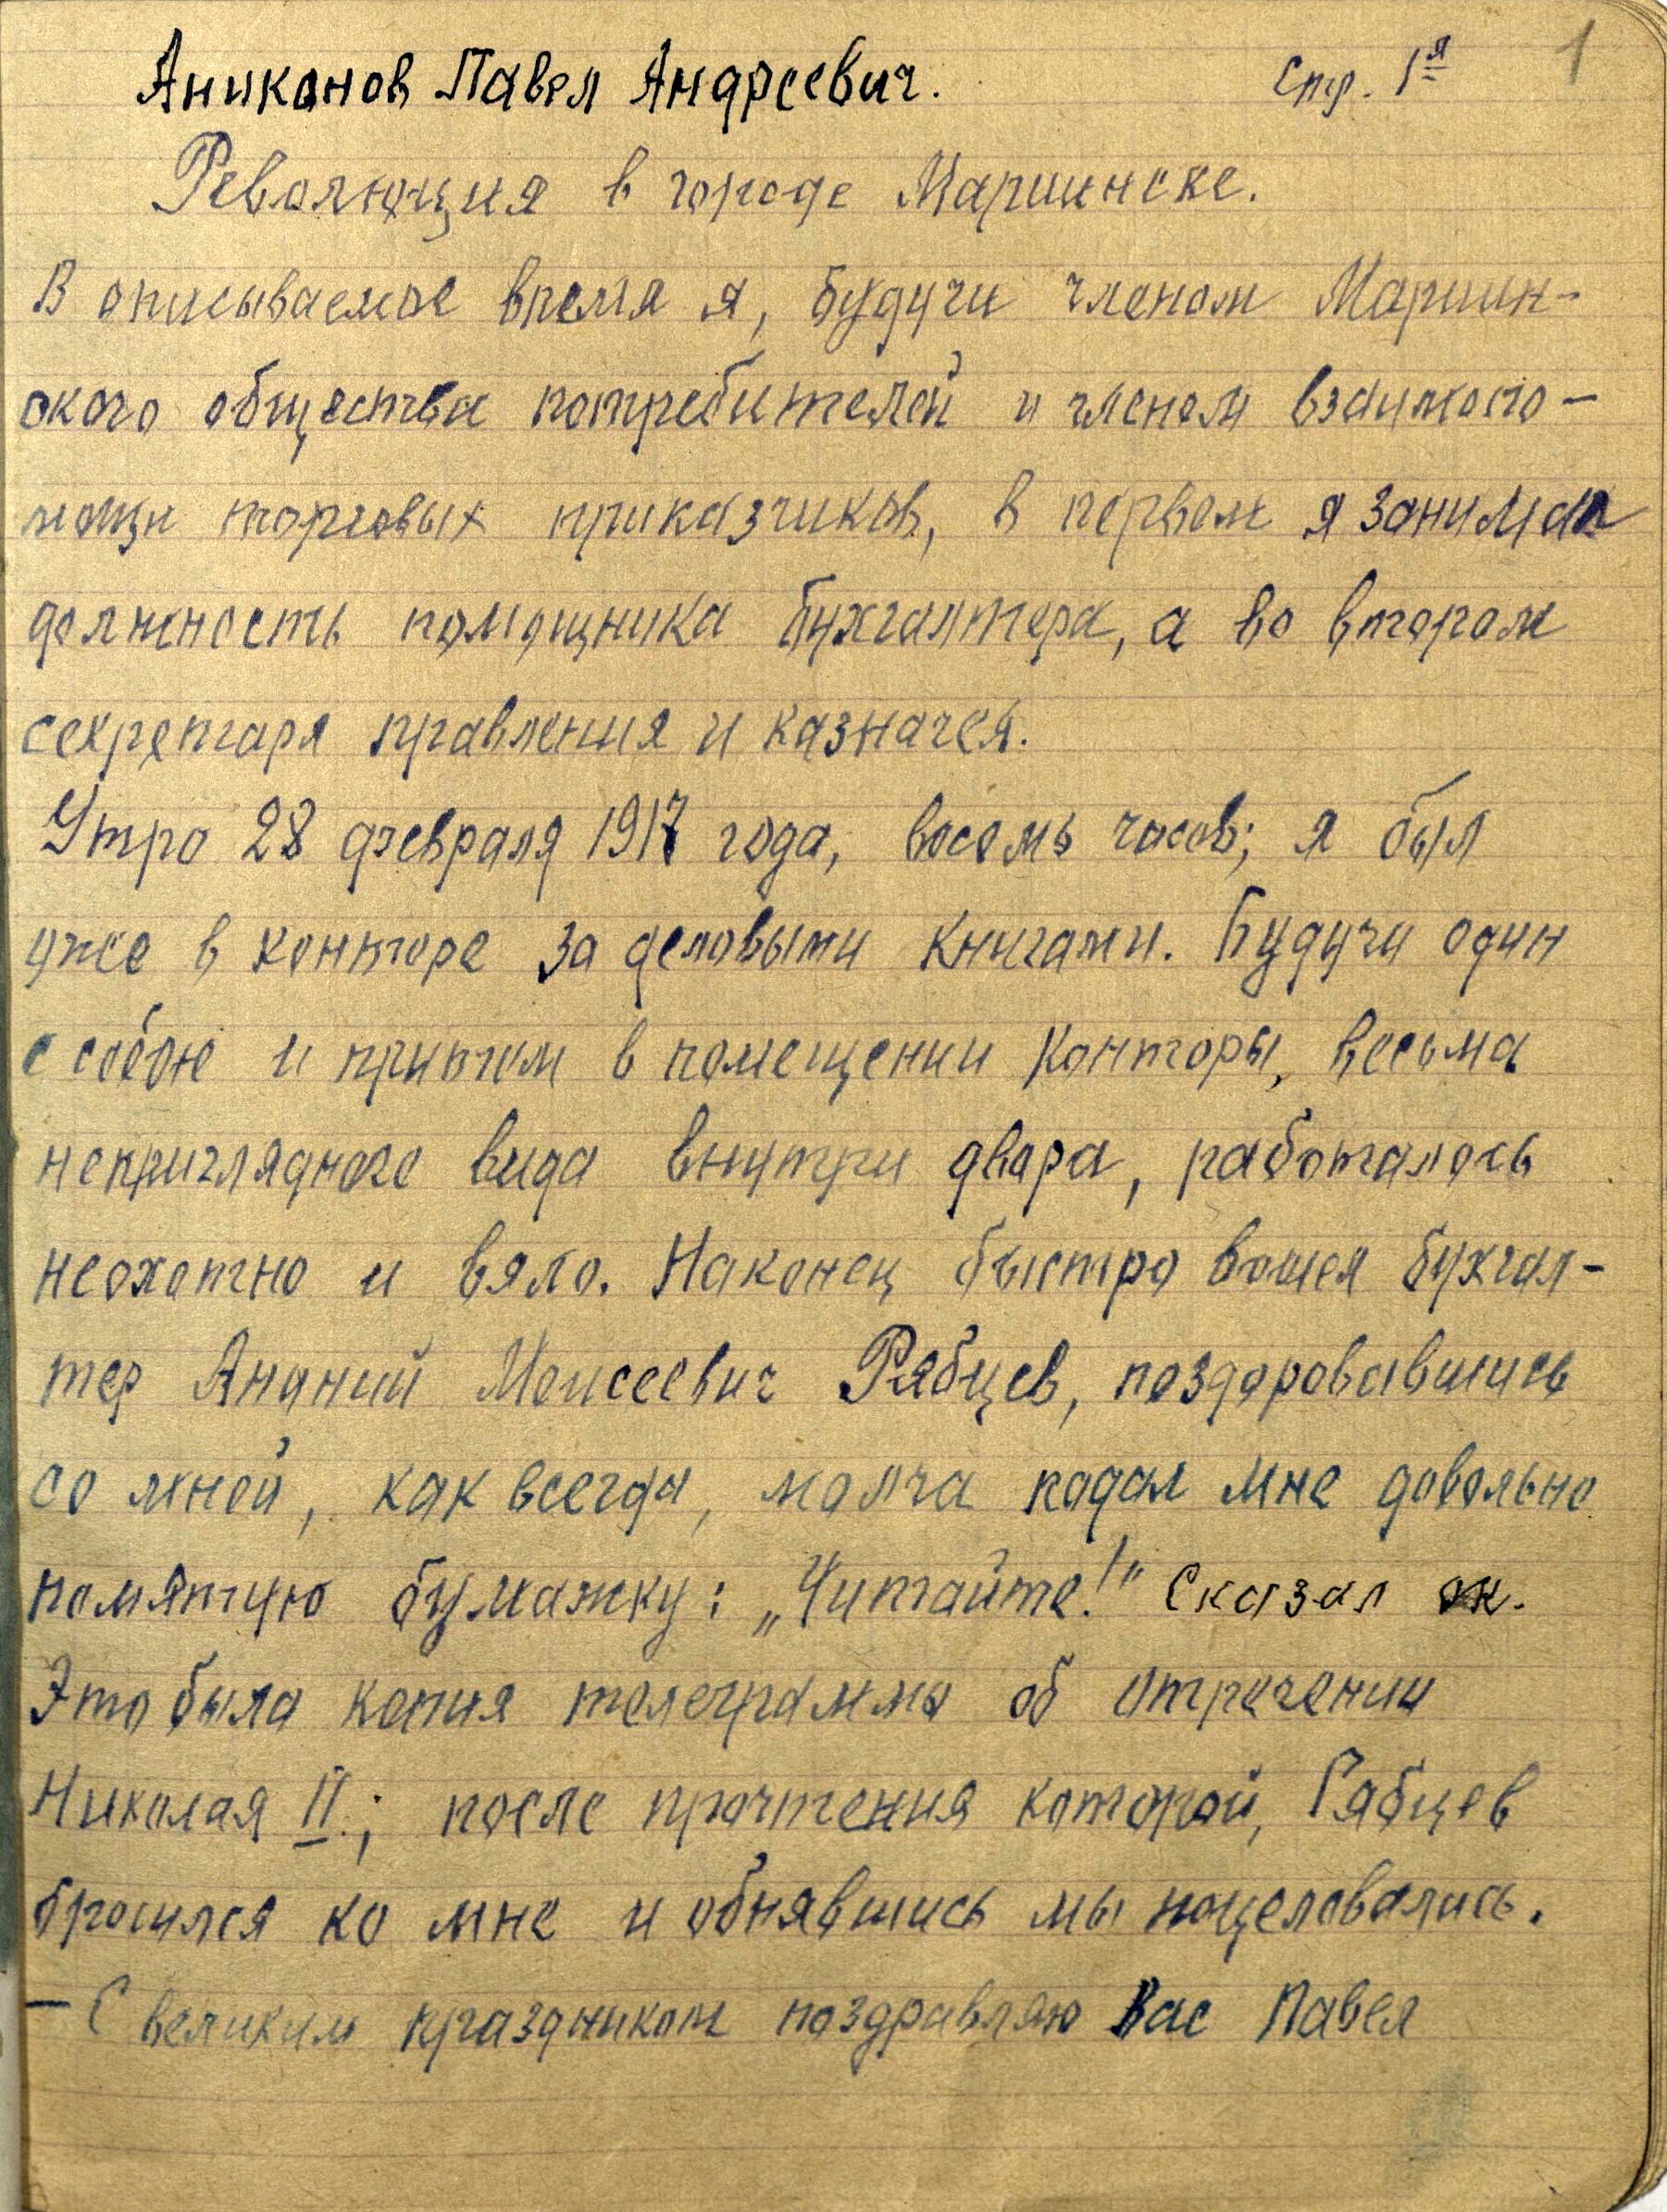 Аниканов Павел Андреевич. Стр. 1я 1
Революция в городе Мариинске.
В описываемое время я, будучи членом Мариин-
ского общества потребителей и членом взаимопо-
мощи торговых приказчиков, в первом я занимал
должность помощника бухгалтера, а во втором
секретаря правления и казначея.
Утро 28 февраля 1917 года, восемь часов; я был
уже в конторе за деловыми книгами. Будучи один
с собою и притом в помещении конторы, весьма
неприглядного вида внутри двора, работалось
неохотно и вяло. Наконец быстро вошел бухгал-
тер Ананий Моисеевич Рябцев, поздоровавшись
со мной, как всегда, молча подал мне довольно
помятую бумажку: „Читайте!“ Сказал он.
Это была копия телеграммы об отречении
Николая II.; после прочтения которой, Рябцев
бросился ко мне и обнявшись мы поцеловались.
— С великим праздником поздравляю Вас Павел